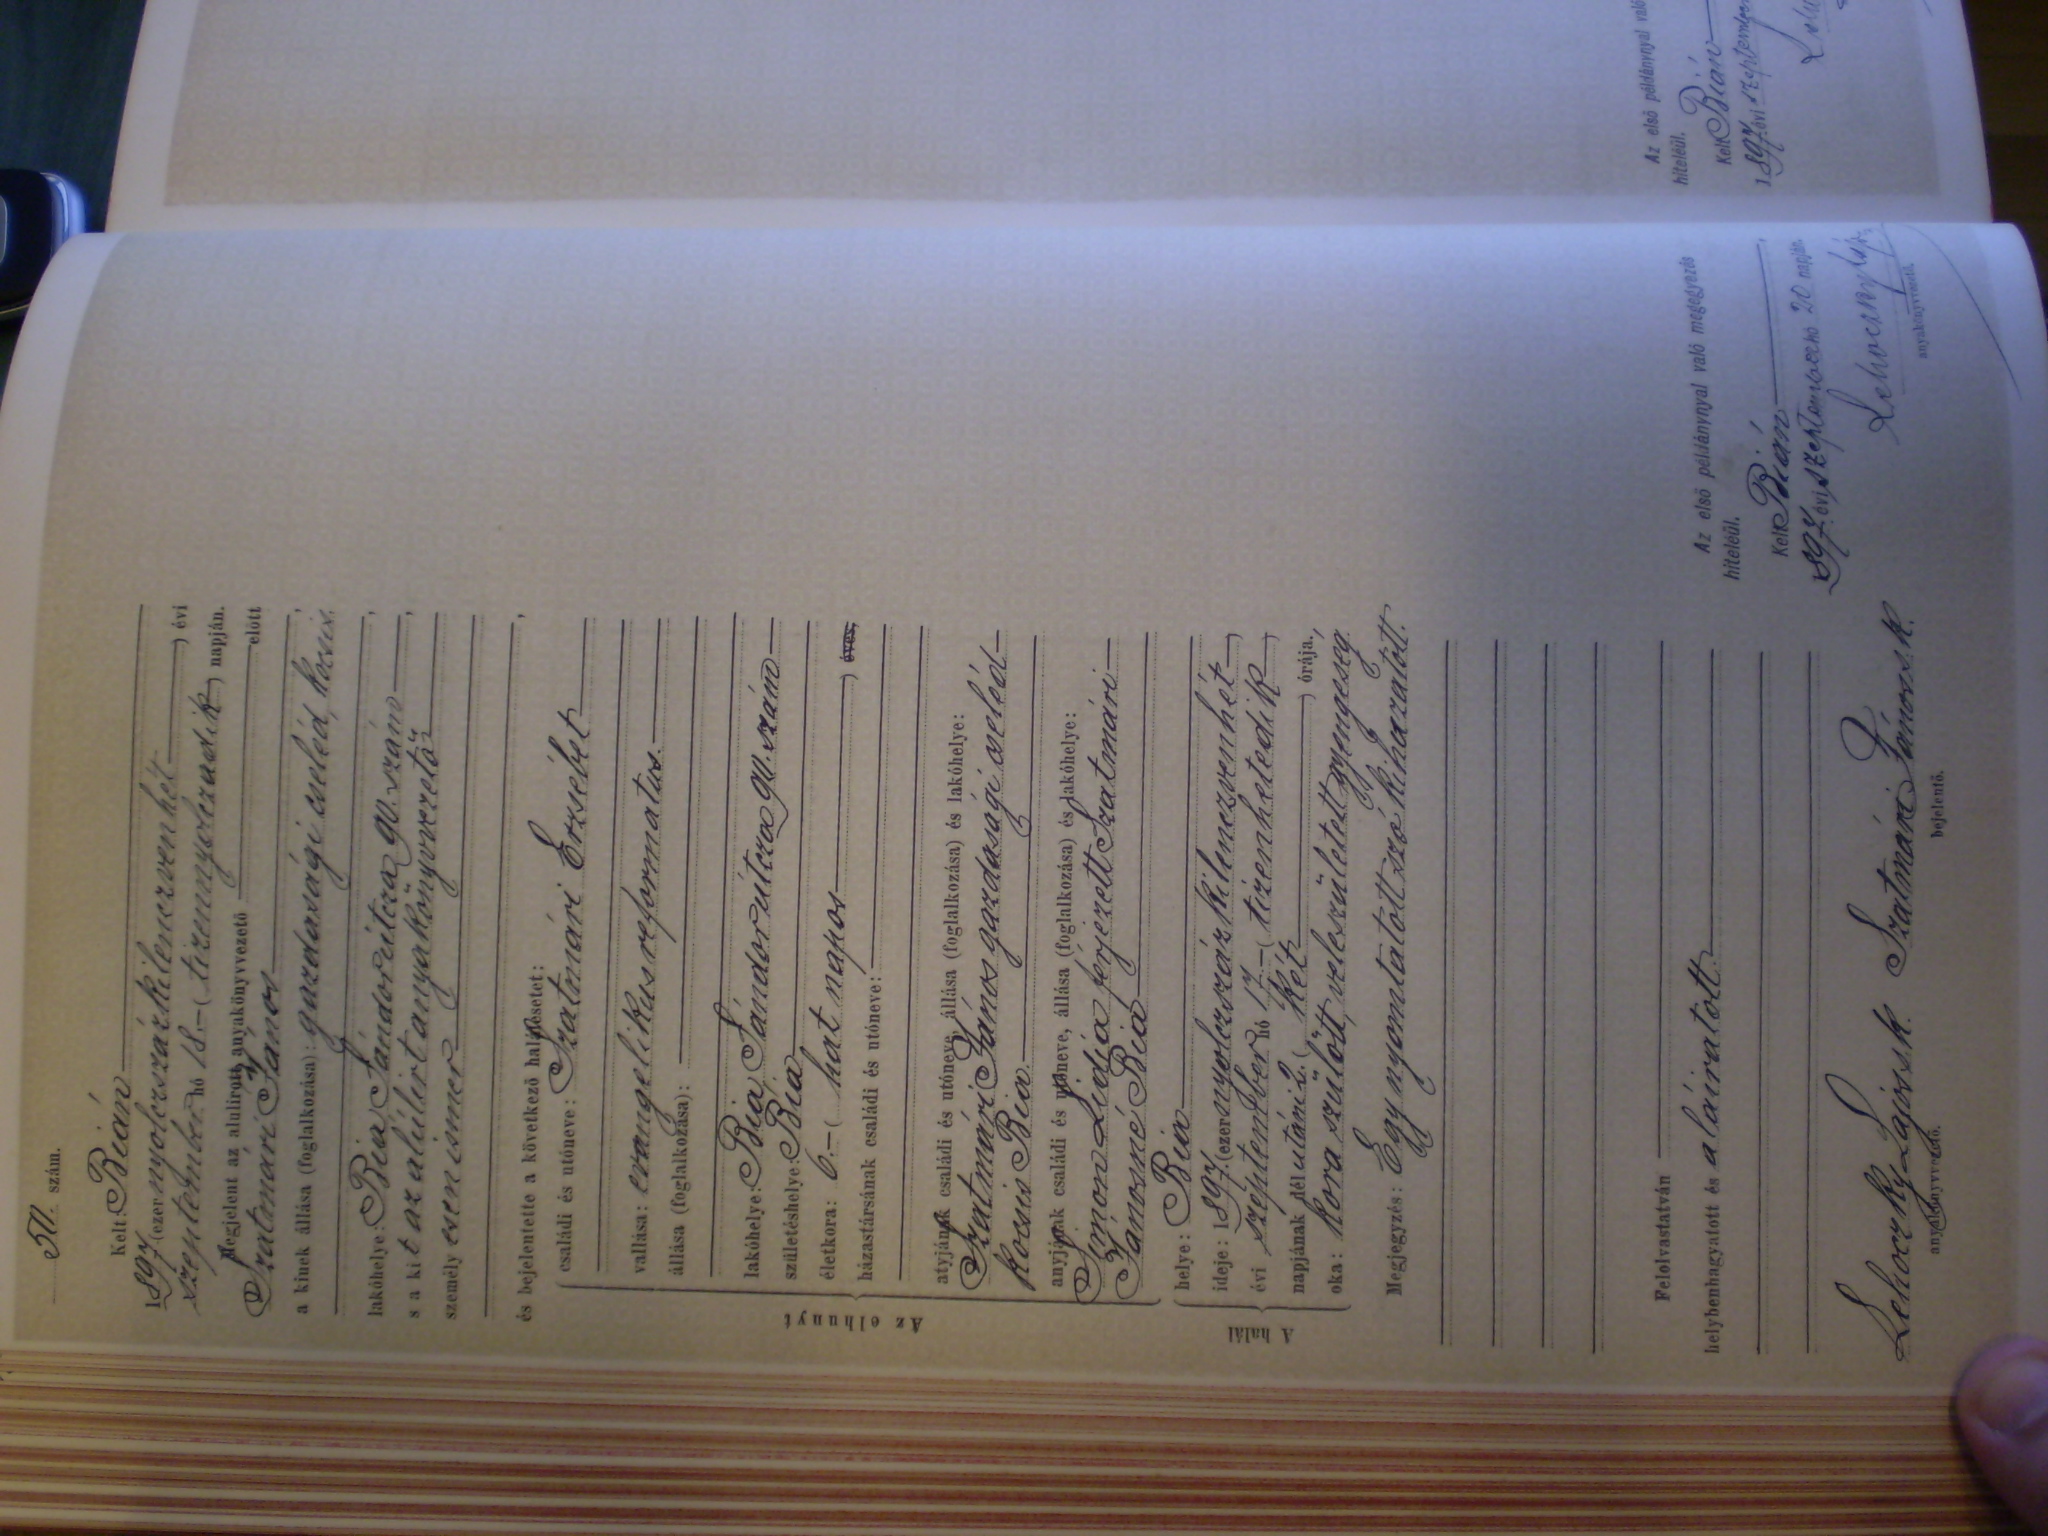 50. szám.
Kelt Bián
1897 (ezer nyolczszázkilenczvenhét) évi
szeptember hó 18.-(tizennyolczadik) napján.
Megjelent az alulirott anyakönyvvezető előtt
Szatmári János
a kinek állása (foglalkozása): gazdasági cseléd, kocsis,
lakóhelye: Bia Sándor utcza 90. szám,
s a kit az alúlirt anyakönyvvezető
személyesen ismer,
és bejelentette a következő halálesetet:
Az elhunyt
családi és utóneve: Szatmári Erzsébet
vallása: evangelikus reformatus.
állása (foglalkozása):
lakóhelye: Bia Sándor utcza 90. szám
születéshelye: Bia
életkora: 6.-(hat napos) éves,
házastársának családi és utóneve:
atyjának családi és utóneve, állása (foglalkozása) és lakóhelye:
Szatmári János gazdasági cseléd
kocsis Bia.
anyjának családi és utóneve, állása (foglalkozása) és lakóhelye:
Simon Lidia férjezett Szatmári
Jánosné Bia
A halál
helye: Bia
ideje: 1897. (ezer nyolczszáz kilenczvenhét)
évi szeptember hó 17.-(tizenhetedik)
napjának délutáni 2. (két) órája,
oka: kora szülött, veleszületett gyengeség.
Megjegyzés: Egy nyomtatott szó kihuzatott.
Felolvastatván
helybenhagyatott és aláiratott.
Lehoczky Lajos s. k. Szatmári János s. k.
anyakönyvvezető. bejelentő.
Az első példánynyal való megegyezés
hiteléül.
Kelt Bián
1897. évi szeptember hó 20 napján.
anyakönyvvezető.
Az első példánynyal való
hiteléül.
Kelt Bián
1897. évi szeptember